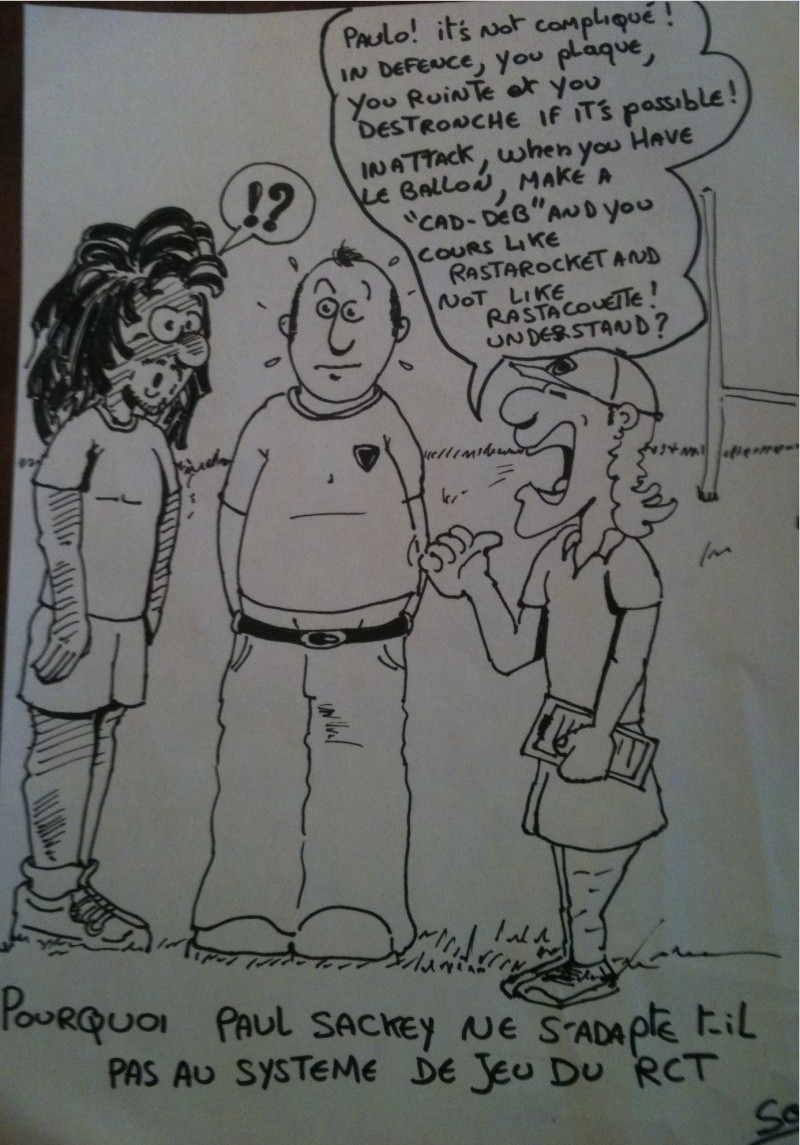 PAULO! it's NOT COMPLIQUÉ!
IN DEFENCE, YOU PLAQUE,
YOU RUINTE et YOU
DESTRONCHE IF IT'S possible!
IN ATTACK, when you HAVE
LE BALLON, MAKE A
"CAD-DEB" AND YOU
COURS LIKE
RASTAROCKET AND
NOT LIKE
RASTACOUETTE!
UNDERSTAND?
!?
POURQUOI PAUL SACKEY NE S'ADAPTE t-iL
PAS AU SYSTEME DE JEU DU RCT